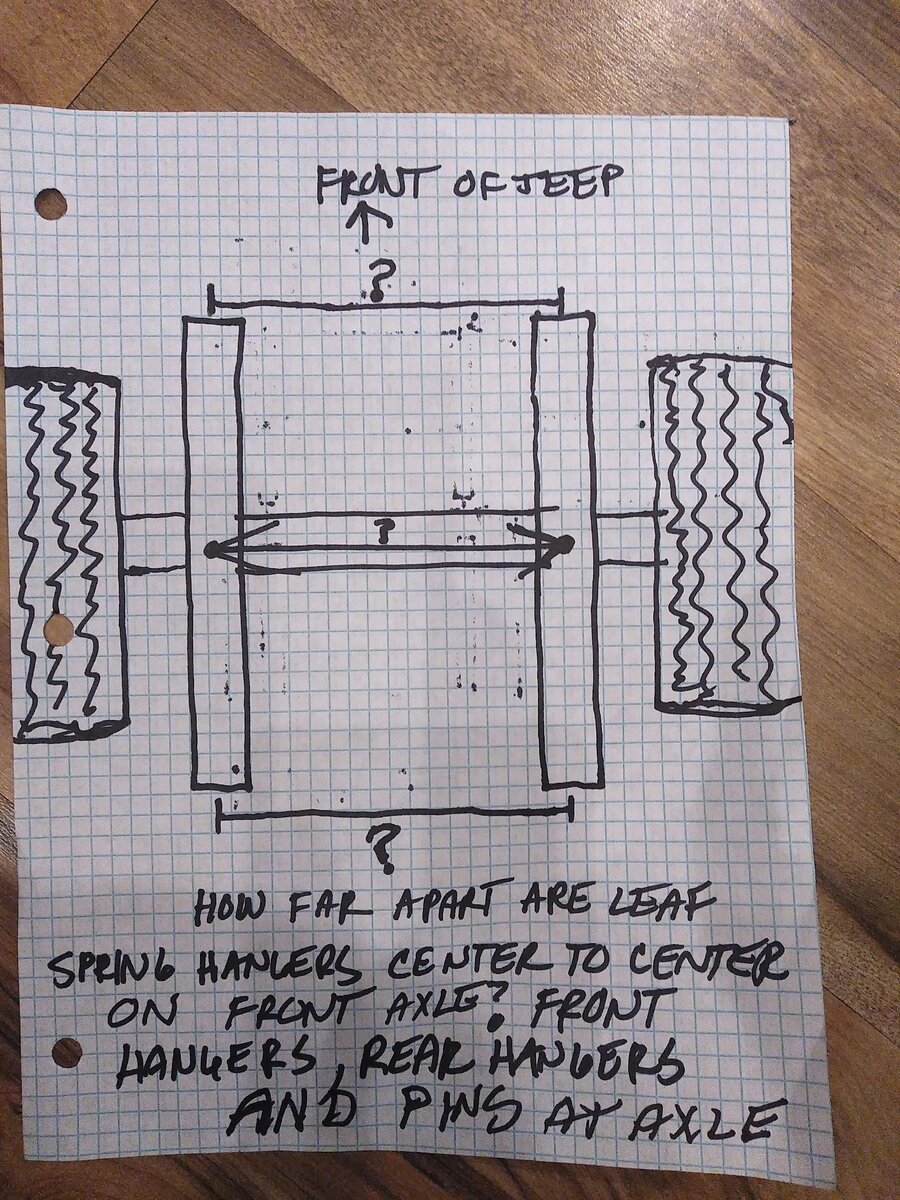 FRONT OF JEEP
?
?
?
HOW FAR APART ARE LEAF
SPRING HANGERS CENTER TO CENTER
ON FRONT AXLE? FRONT
HANGERS, REAR HANGERS
AND PINS AT AXLE